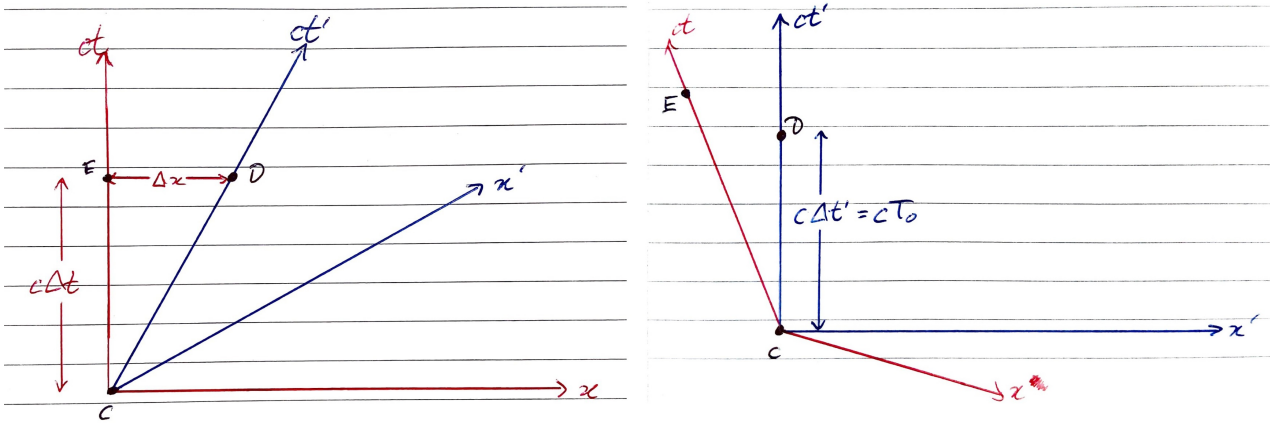 ct
ct'
E
Δx
D
x'
cΔt
x
C
ct
ct'
E
D
cΔt' = cT₀
x'
C
x